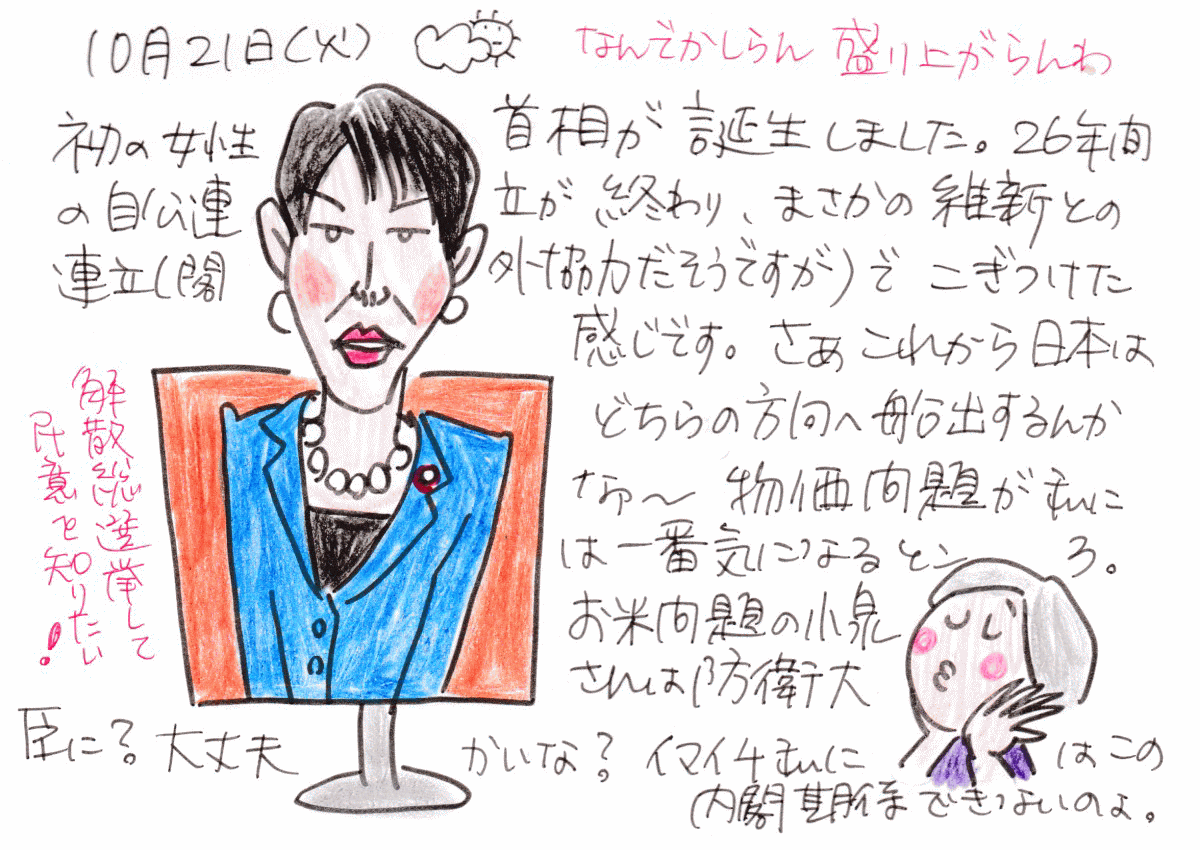 10月21日(火)
なんでかしらん 盛り上がらんわ
初の女性 首相が 誕生しました。26年間
の自公連 立が 終わり、まさかの 維新との
連立(閣 外協力だそうですが)で こぎつけた
感じです。さあ これから 日本は
どちらの方向へ 船出するんか
なァ〜 物価問題が私に
は一番気になるところ。
お米問題の小泉
さんは防衛大
臣に? 大丈夫 かいな? イマイチ私に はこの
内閣期待できないのよ。
解散総選挙して
民意を知りたい!